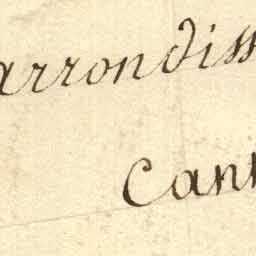 arrondiss
Can